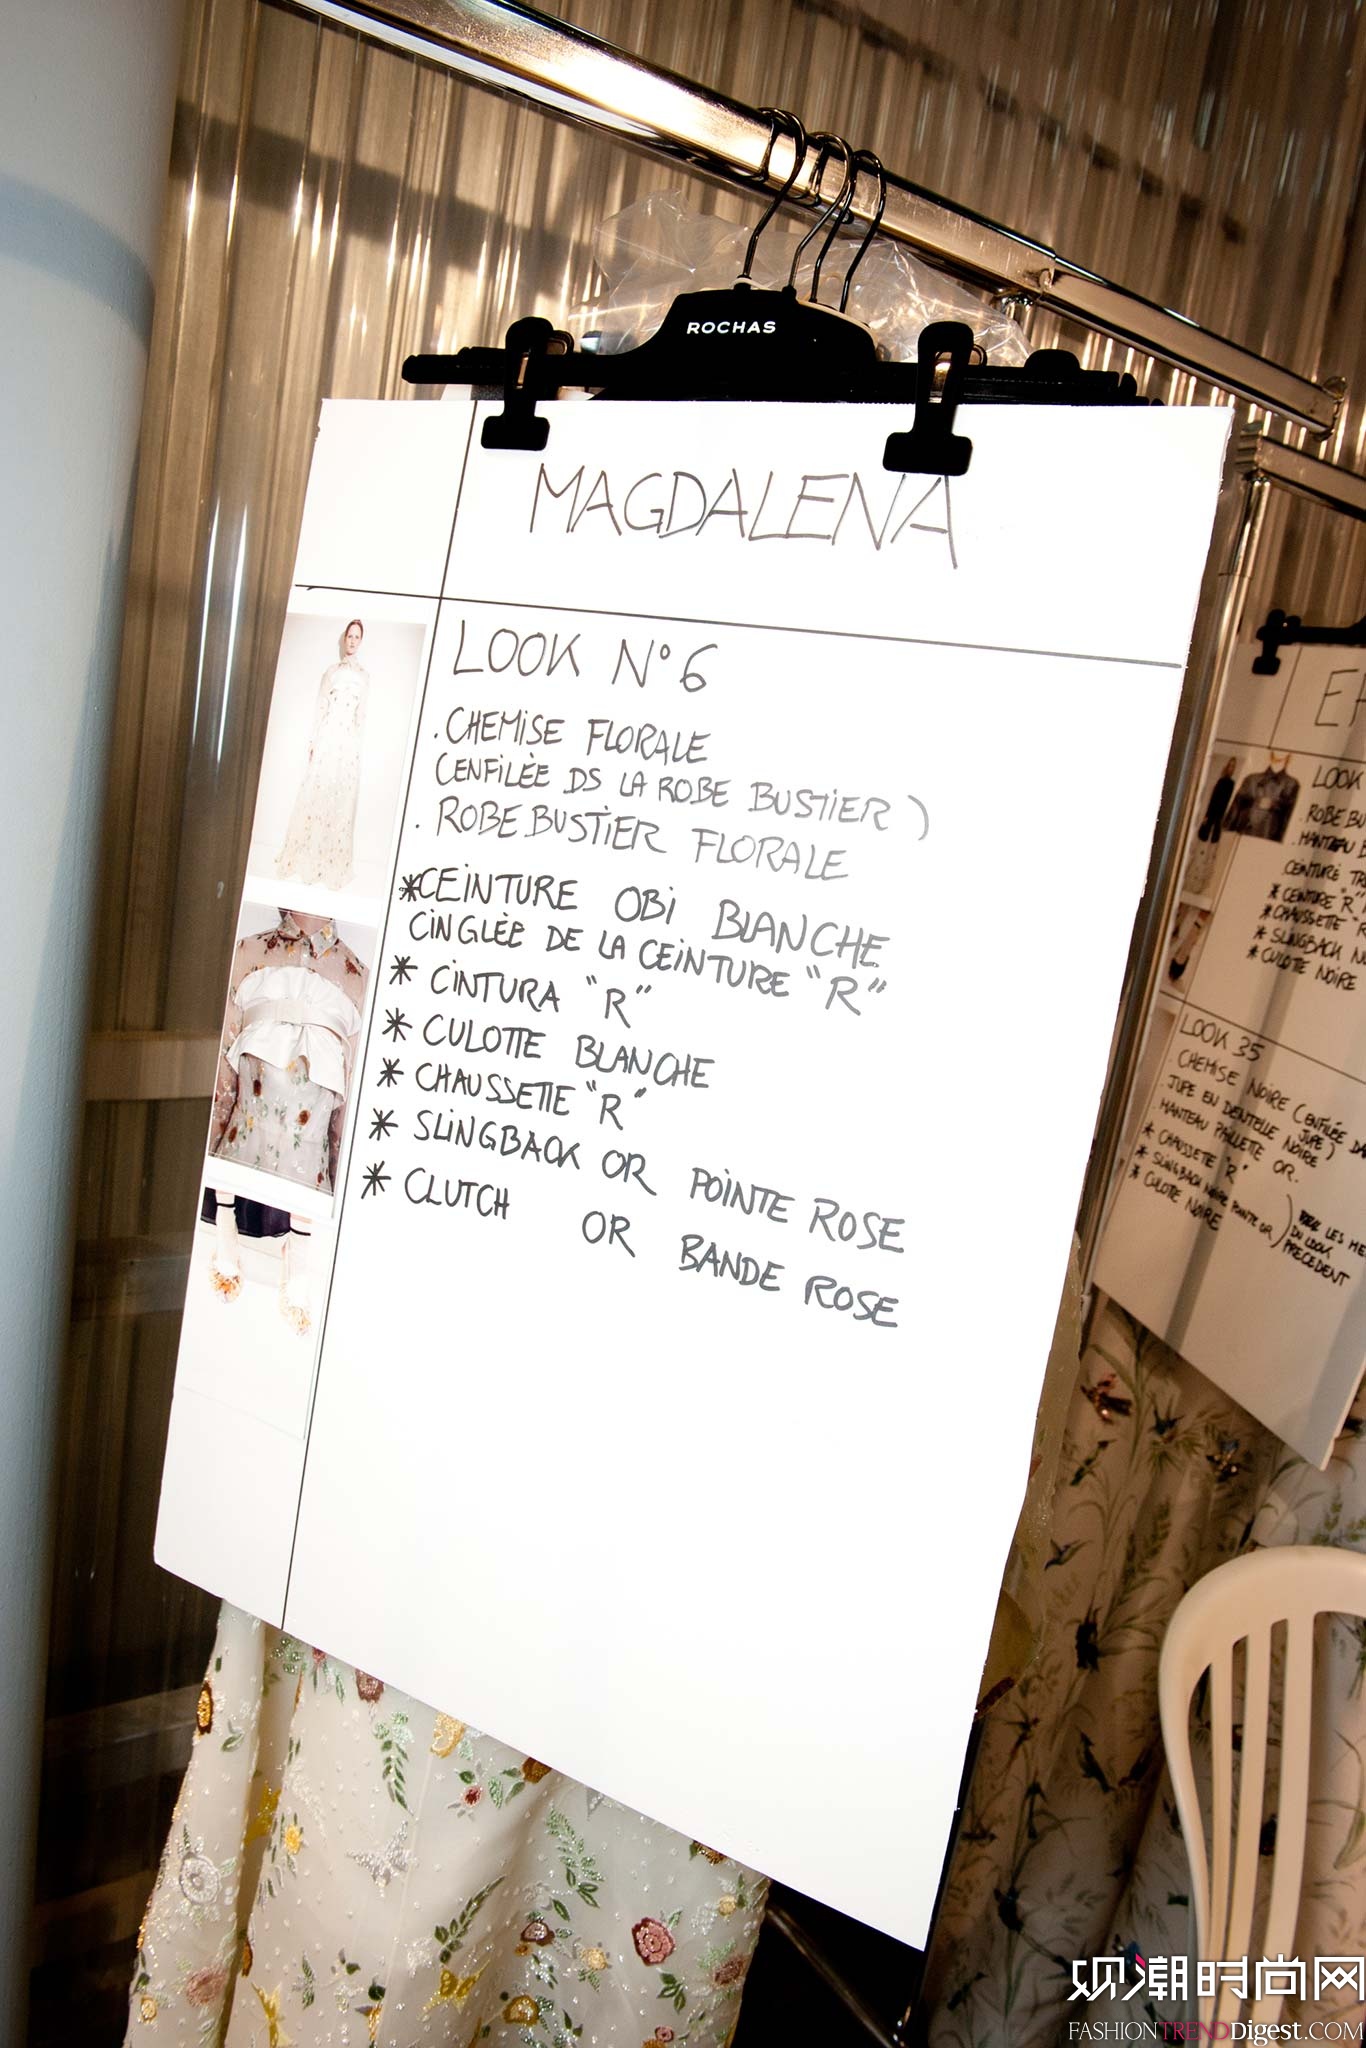 ROCHAS
MAGDALENA
LOOK N° 6
. CHEMISE FLORALE
(ENFILÉE DS LA ROBE BUSTIER )
. ROBE BUSTIER FLORALE
*CEINTURE OBI BLANCHE
CINGLÉE DE LA CEINTURE "R"
* CINTURA "R"
* CULOTTE BLANCHE
* CHAUSSETTE "R"
* SLINGBACK OR POINTE ROSE
* CLUTCH OR BANDE ROSE
LOOK
. ROBE BU
. MANTEAU
CEINTURE
* CEINTURE "R"
* CHAUSSETTE "R
* SLINGBACK
* CULOTTE NOIRE
LOOK 35
. CHEMISE NOIRE (ENFILÉE
JUPE)
. JUPE EN DENTELLE NOIRE
. MANTEAU PAILLETTE OR.
* CHAUSSETTE "R"
* SLINGBACK NOIRE POINTE OR
* CULOTTE NOIRE
LES
DU LOOK
PRECEDENT
观潮时尚网
FASHIONTRENDDIGEST.COM